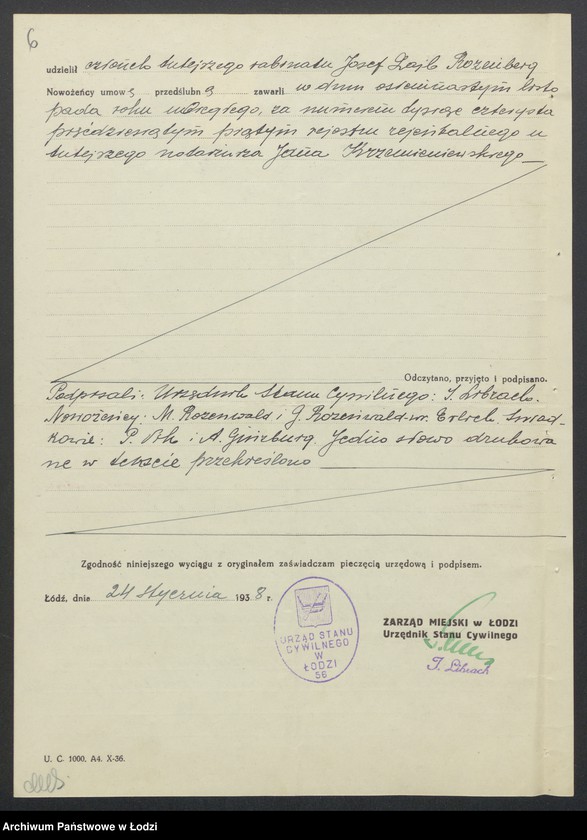 6
udzielił członek tutejszego rabinatu Josef Lajb Rozenberg
Nowożeńcy umowę przedślubną zawarli w dniu osiemnastym listo
pada roku ubiegłego, za numerem tysiąc czterysta
pięćdziesiątym piątym rejestru rejentalnego u
tutejszego notariusza Jana Krzemieniewskiego
Odczytano, przyjęto i podpisano.
Podpisali: Urzędnik Stanu Cywilnego: I. Librach.
Nowożeńcy: M. Rozenwald i G. Rozenwald ur. Erlich. Świad-
kowie: P. i A. Ginzburg. Jedno słowo drukowa
ne w tekście przekreślono
Zgodność niniejszego wyciągu z oryginałem zaświadczam pieczęcią urzędową i podpisem.
Łódź, dnia 24 stycznia 1938 r.
URZĄD STANU
CYWILNEGO
W
ŁODZI
56
ZARZĄD MIEJSKI w ŁODZI
Urzędnik Stanu Cywilnego
I. Librach
U. C. 1000. A4. X-36.
Archiwum Państwowe w Łodzi